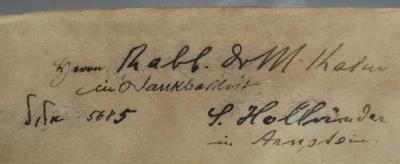 Herrn Rabb. Dr M. Kahn
in Dankbarkeit
5685 S. Holländer
in Arnstein.